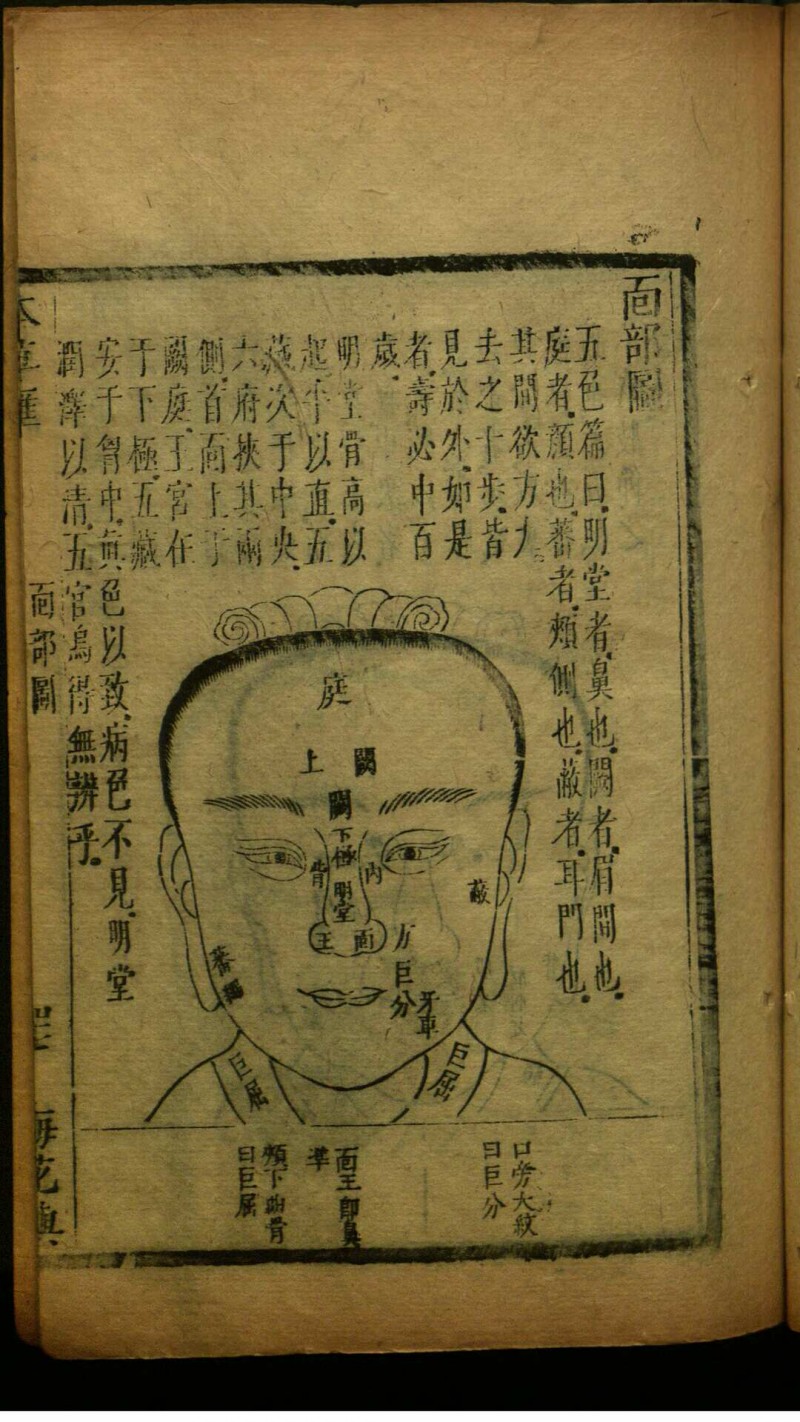 面部圖
五色篇曰明堂者鼻也闕者眉間也
庭者顏也蕃者頰側也蔽者耳門也
其間欲方大
去之十步皆
見於外如是
者壽必中百
歲
明堂骨高以
起平以直五
藏次于中央
六府挾其兩
側首面上于
闕庭王宮在
于下極五藏
安于胷中眞色以致病色不見明堂
潤澤以清五官烏得無辨乎
庭
闕
上
闕
下極
明堂
內
眥
面
王
方
巨分
牙車
蔽
蕃
巨屈
巨屈
口旁大紋
曰巨分
面王卽鼻
準
頰下曲骨
曰巨屈
面部圖